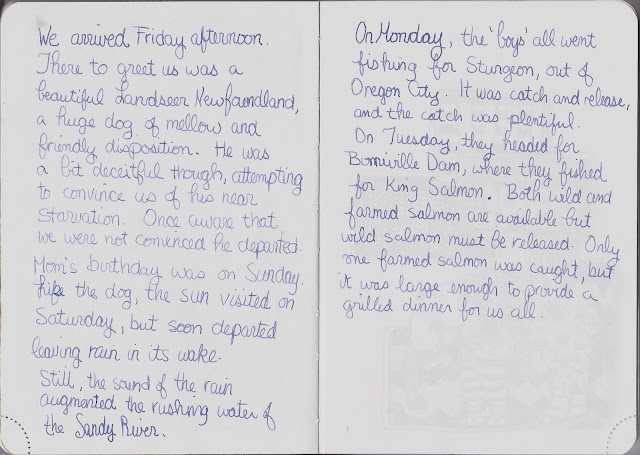 We arrived Friday afternoon.
There to greet us was a
beautiful Landseer Newfoundland,
a huge dog of mellow and
friendly disposition. He was
a bit deceitful though, attempting
to convince us of his near
starvation. Once aware that
we were not convinced he departed.
Mom's birthday was on Sunday.
Like the dog, the sun visited on
Saturday, but soon departed
leaving rain in its wake.
Still, the sound of the rain
augmented the rushing water of
the Sandy River.
On Monday, the 'boys' all went
fishing for Sturgeon, out of
Oregon City. It was catch and release,
and the catch was plentiful.
On Tuesday, they headed for
Bonniville Dam, where they fished
for King Salmon. Both wild and
farmed salmon are available but
wild salmon must be released. Only
one farmed salmon was caught, but
it was large enough to provide a
grilled dinner for us all.